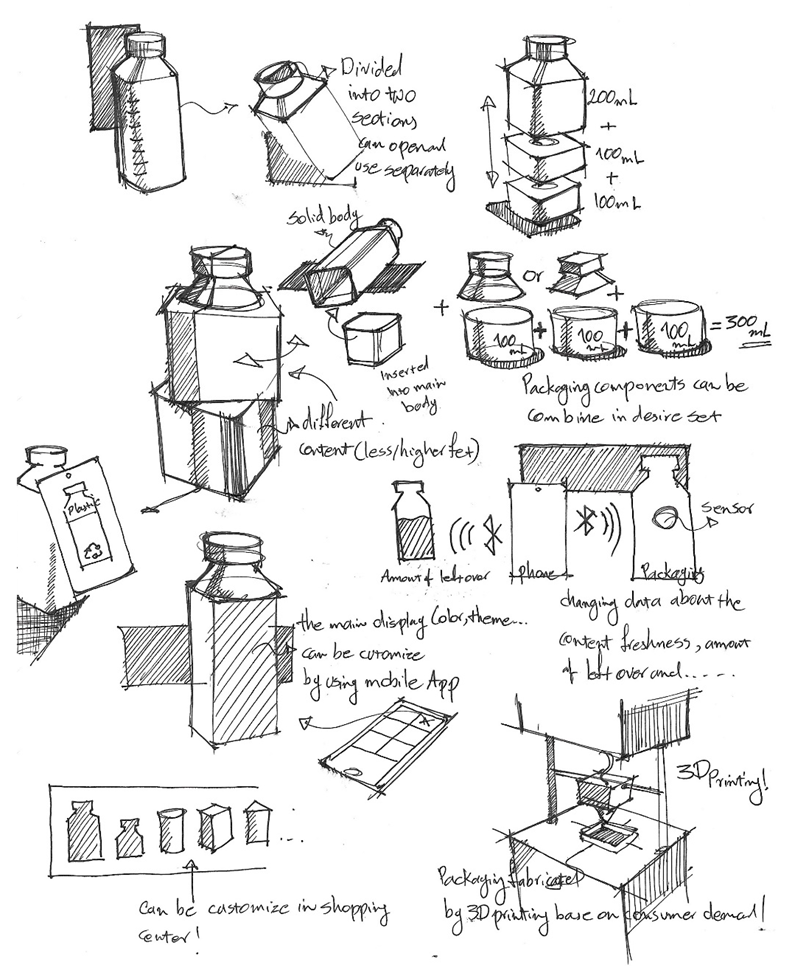 Divided
into two
sections
can open and
use separately
200mL
+
100mL
+
100mL
solid body
Inserted
into main
body
+
or
+
100
mL
+
100
mL
+
100
mL
= 300
mL
Packaging components can be
combine in desire set
different
content (less/higher fet)
Plastic
Amount of left over
Phone
Packaging
sensor
changing data about the
content freshness, amount
of left over and.......
the main display Color, theme...
can be cutomize
by using mobile App
3D Printing!
...
can be customize in shopping
center!
Packaging fabricated
by 3D printing base on consumer demad!